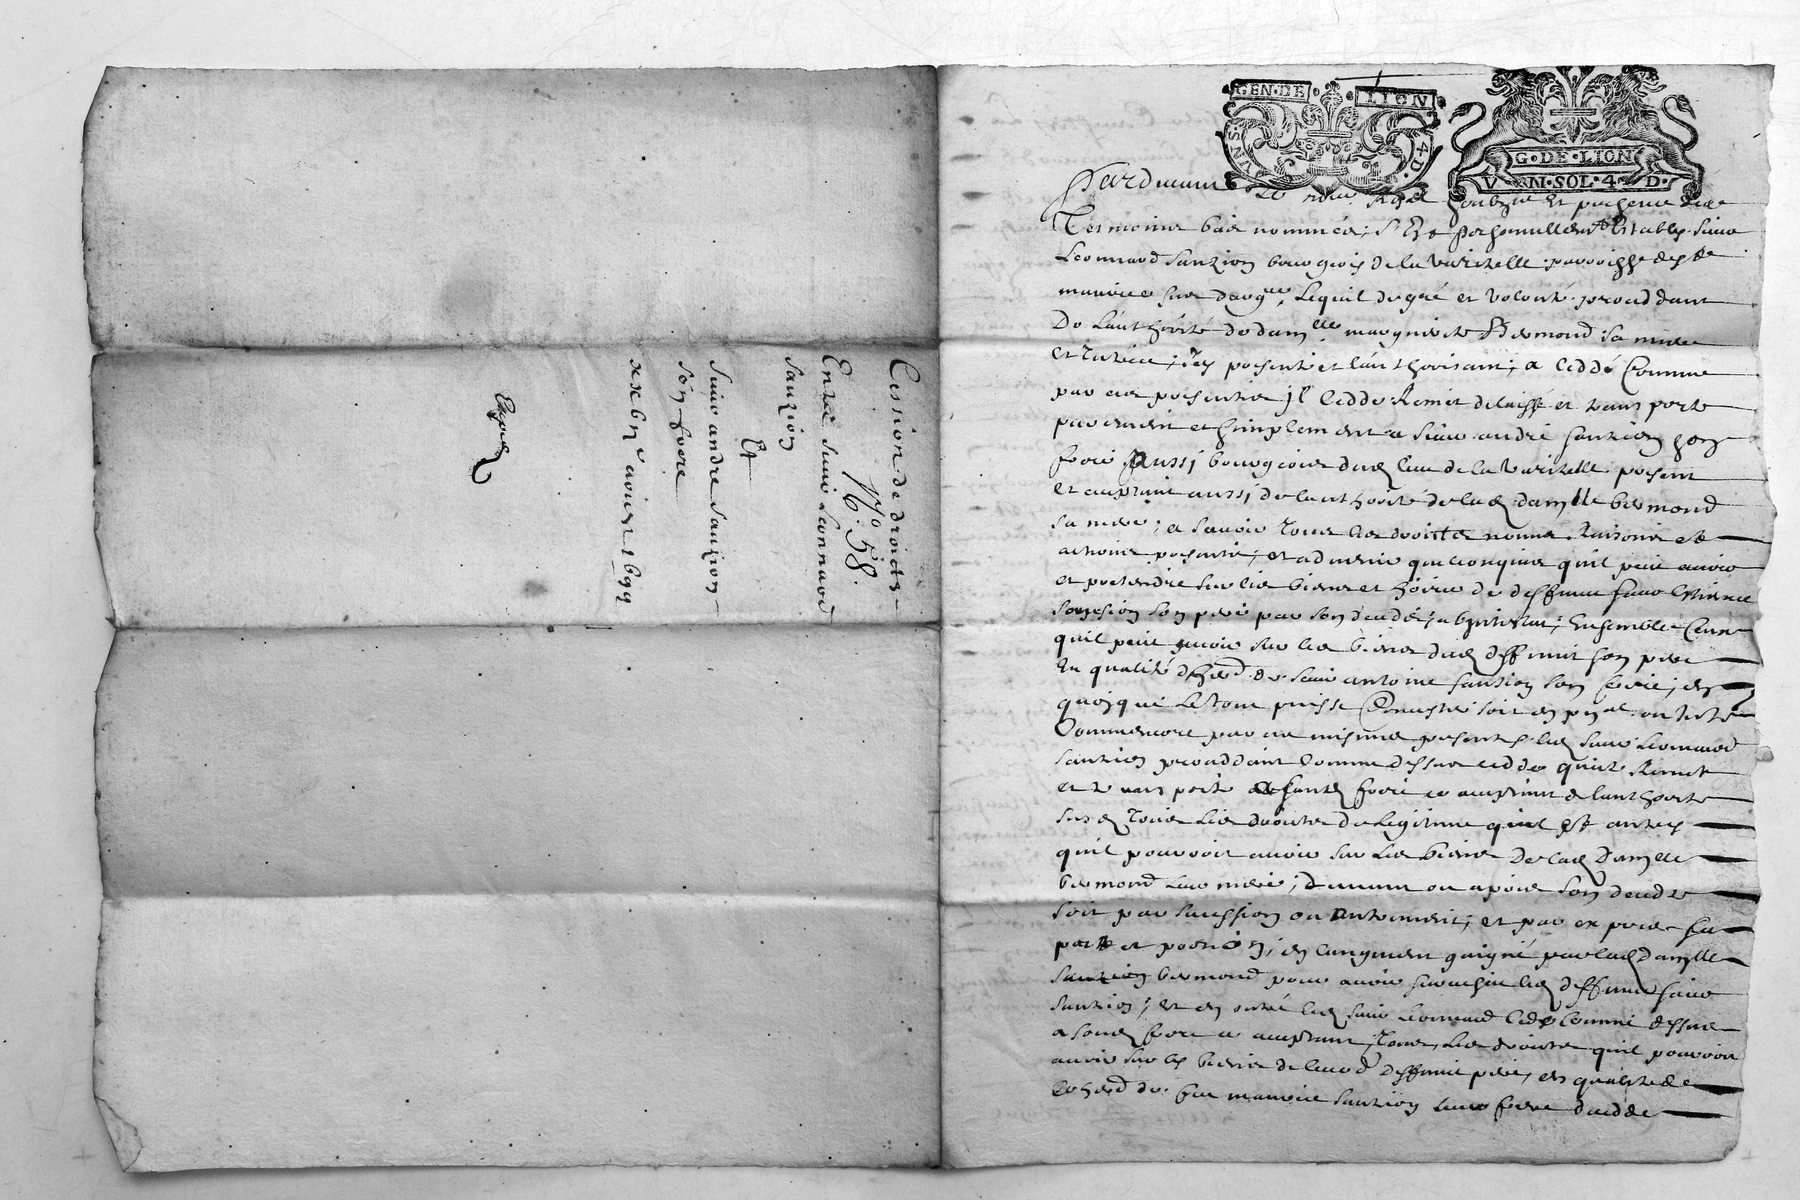 Cession de droicts
N.º 58.
Entre Sieur Leonnard
Sauzion
Et
Sieur andre Sauzion
son frere
avier 1699
GEN·DE LION
4·D·
G·DE·LION
VN·SOL·4·D·
Pardevant le no.re Royal soubzne et presence des
Tesmoins bas nommés; s'Est personnellemt Estably sieur
Leonnard Sauzion bourgeois de la varizelle parroisse de St
maurice sur dargre, Lequel de gré et volonté proceddant
De L'authorité de damlle margueritte Bermond sa mere
et tutrice; icy presente et l'authorisant; a ceddé Comme
par ces presentes il Cedde Remet delaisse et transporte
purement et simplement a sieur andré Sauzion son
frere Aussi bourgeois dud lieu de la varizelle present
et acceptant aussi de lauthorité de lad damlle bermond
sa mere; a scavoir Tous les droicts noms Raisons et
actions presents; et advenir quelconques qu'il peut avoir
et pretendre sur les biens et hoirie de deffunt sieur Estienne
Sauzion son pere par son deceds; abintestat; Ensemble Ceux
qu'il peut avoir sur les biens dud deffunt son pere
En qualité d'hered. de sieur antoine Sauzion son frere; en
quoy que le tout puisse Consister soit en pnal ou
Comme encore par ces mesmes presentes led sieur Leonnard
Sauzion proceddant Comme dessus cedde quitte Remet
et transporte aud frere ce acceptant de lauthorité
Tous Les droicts de Legitime
qu'il pouvoit avoir sur Les biens De lad Damlle
bermond leur mere; Devant ou apres son deceds
soit par succession ou Autrement; et par expres sa
part et portion; en laugment gaigné par lad damlle
bermond pour avoir survescu led deffunt sieur
Sauzion; Et en outre led sieur Leonnard Cedde Comme dessus
a sond frere ce acceptant, Tous, Les droicts qu'il pouvoit
avoir sur les biens de leurd deffunt pere, en qualité de
Cohered de maurice Sauzion leur frere deceddé